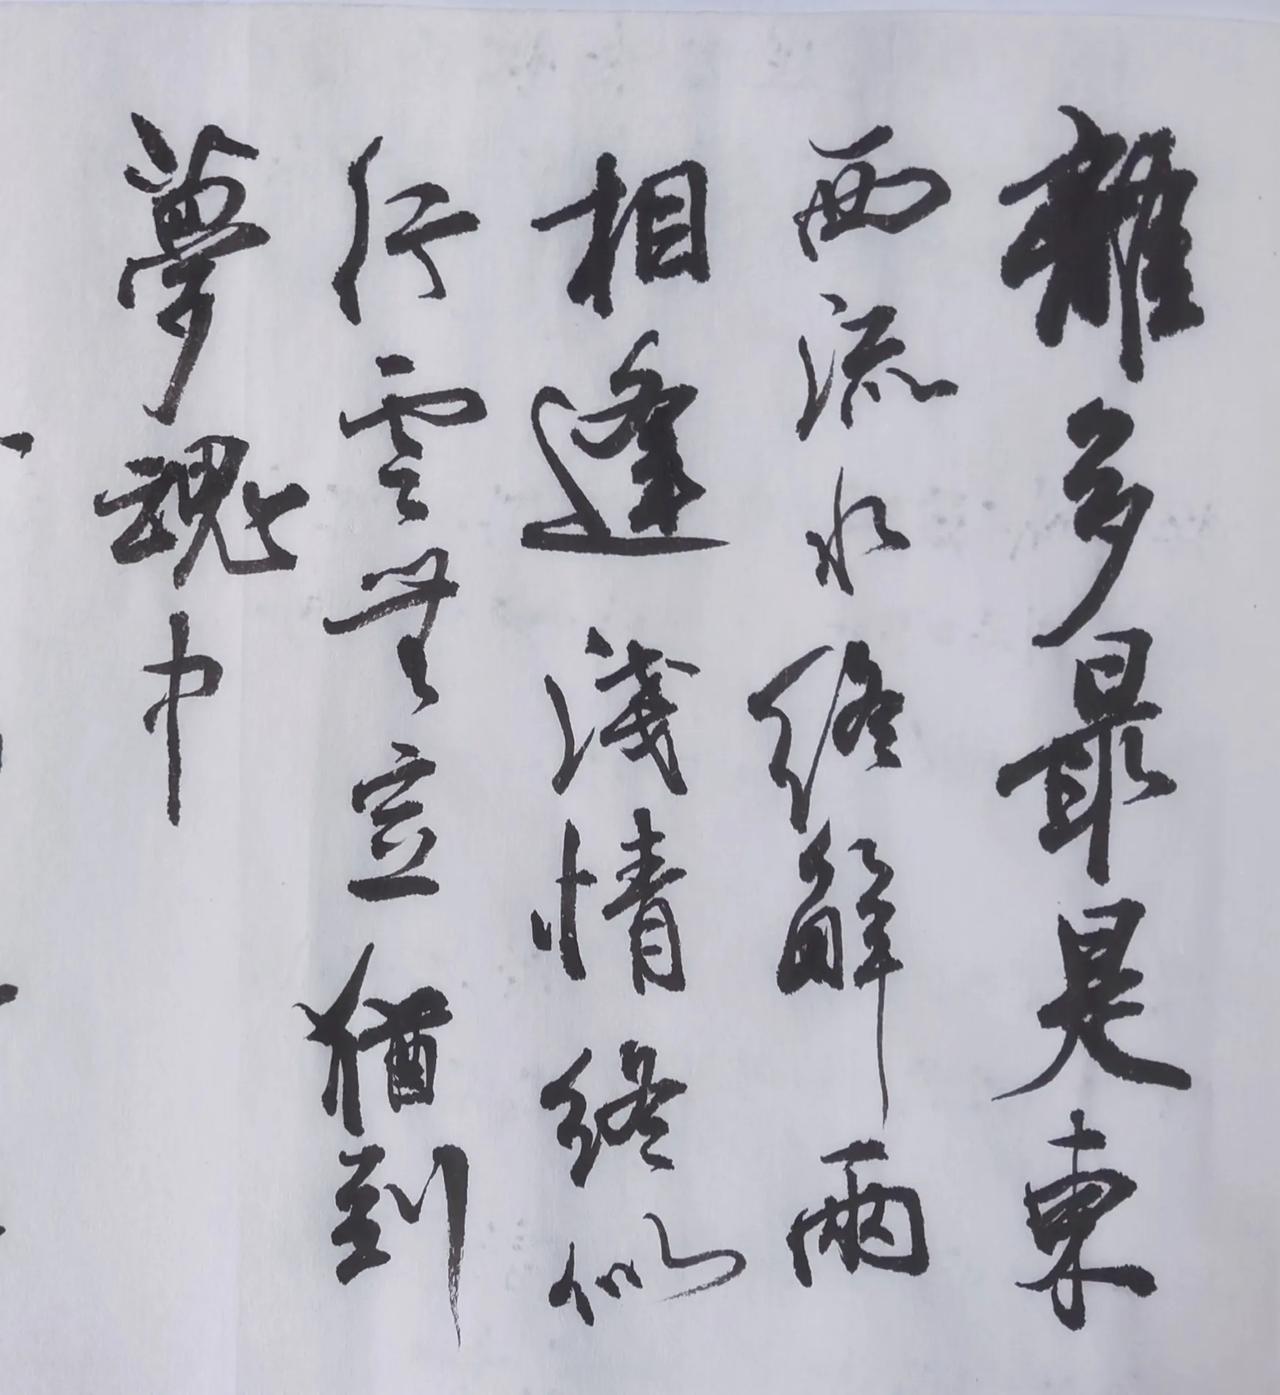 離多最是東
西流水終解兩
相逢淺情終似
行雲無定猶到
夢魂中